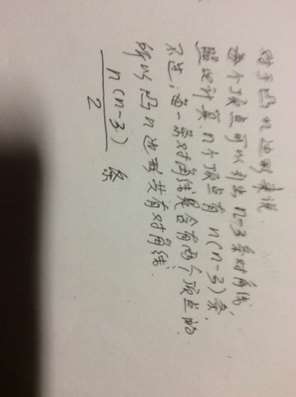 对于凸n边形来说
每个顶点可以引出 n-3 条对角线
照此计算,n个顶点有 n(n-3) 条,
不过,每一条对角线是含有两个顶点的
所以凸n边形共有对角线:
n(n-3)/2 条